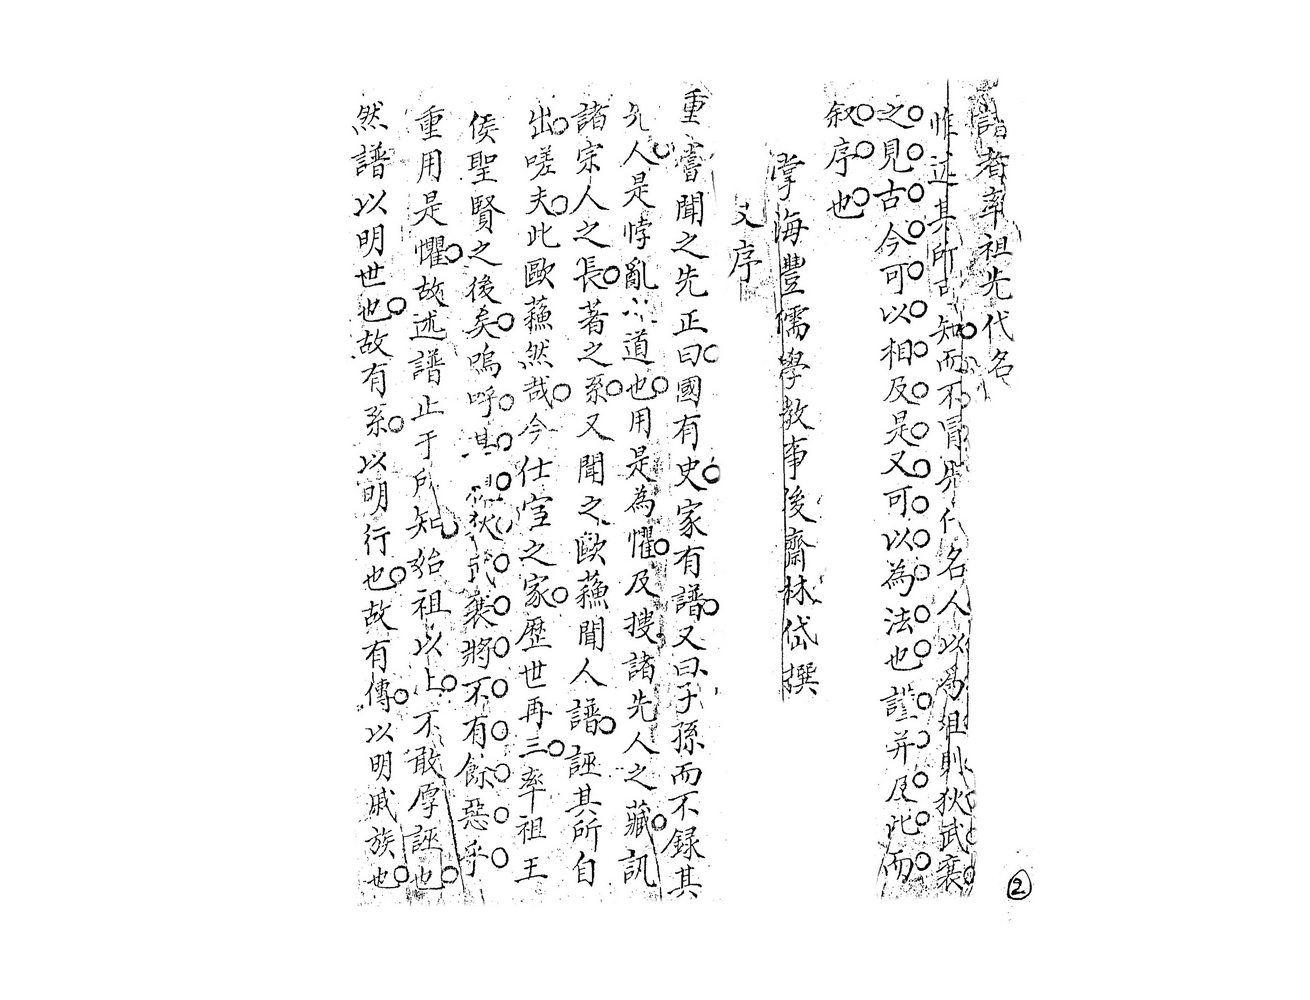 譜者率祖先代名
惟述其所可知而不冒先代名人以為祖則狄武襄
之見古今可以相及是又可以為法也謹并及此而
叙序也
掌海豐儒學教事後齋林岱撰
又序
重嘗聞之先正曰國有史家有譜又曰子孫而不録其
先人是悖亂之道也用是為懼及搜諸先人之藏訊
諸宗人之長著之系又聞之歐蘓聞人譜誣其所自
出嗟夫此歐蘓然哉今仕宦之家歷世再三率祖王
侯聖賢之後矣嗚呼其視狄武襄將不有餘惡乎
重用是懼故述譜止于所知始祖以上不敢厚誣也
然譜以明世也故有系以明行也故有傳以明戚族也
2